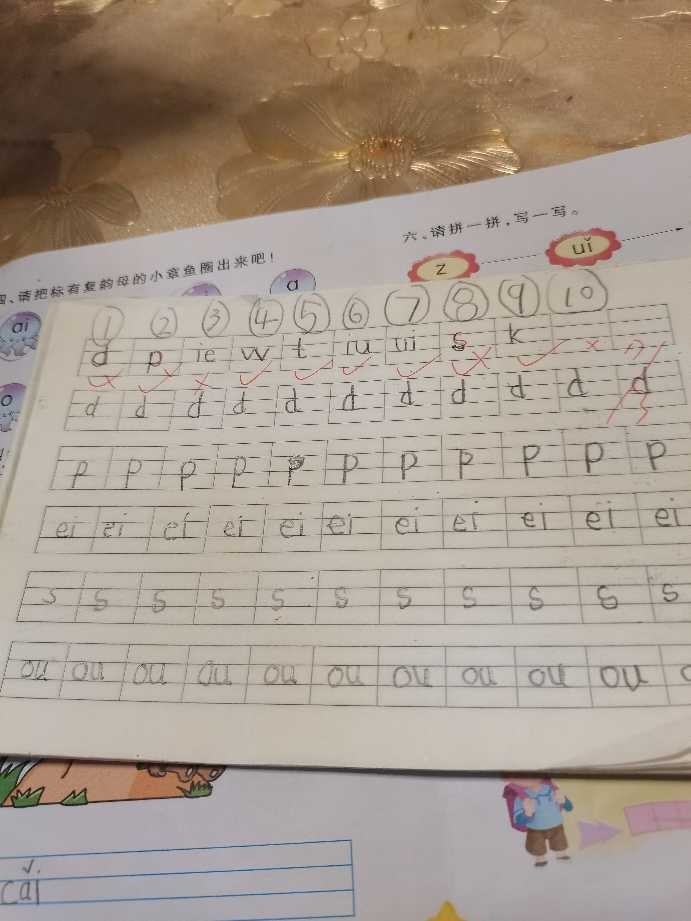 六、请拼一拼，写一写。
四、请把标有复韵母的小章鱼圈出来吧！
z uǐ
ɑi ɑ
o
① ② ③ ④ ⑤ ⑥ ⑦ ⑧ ⑨ ⑩
d p ie w t iu ui s k
d d d d d d d d d d d
p p p p p p p p p p p
ei ei ei ei ei ei ei ei ei ei ei
s s s s s s s s s s s
ou ou ou ou ou ou ou ou ou ou
cǎi